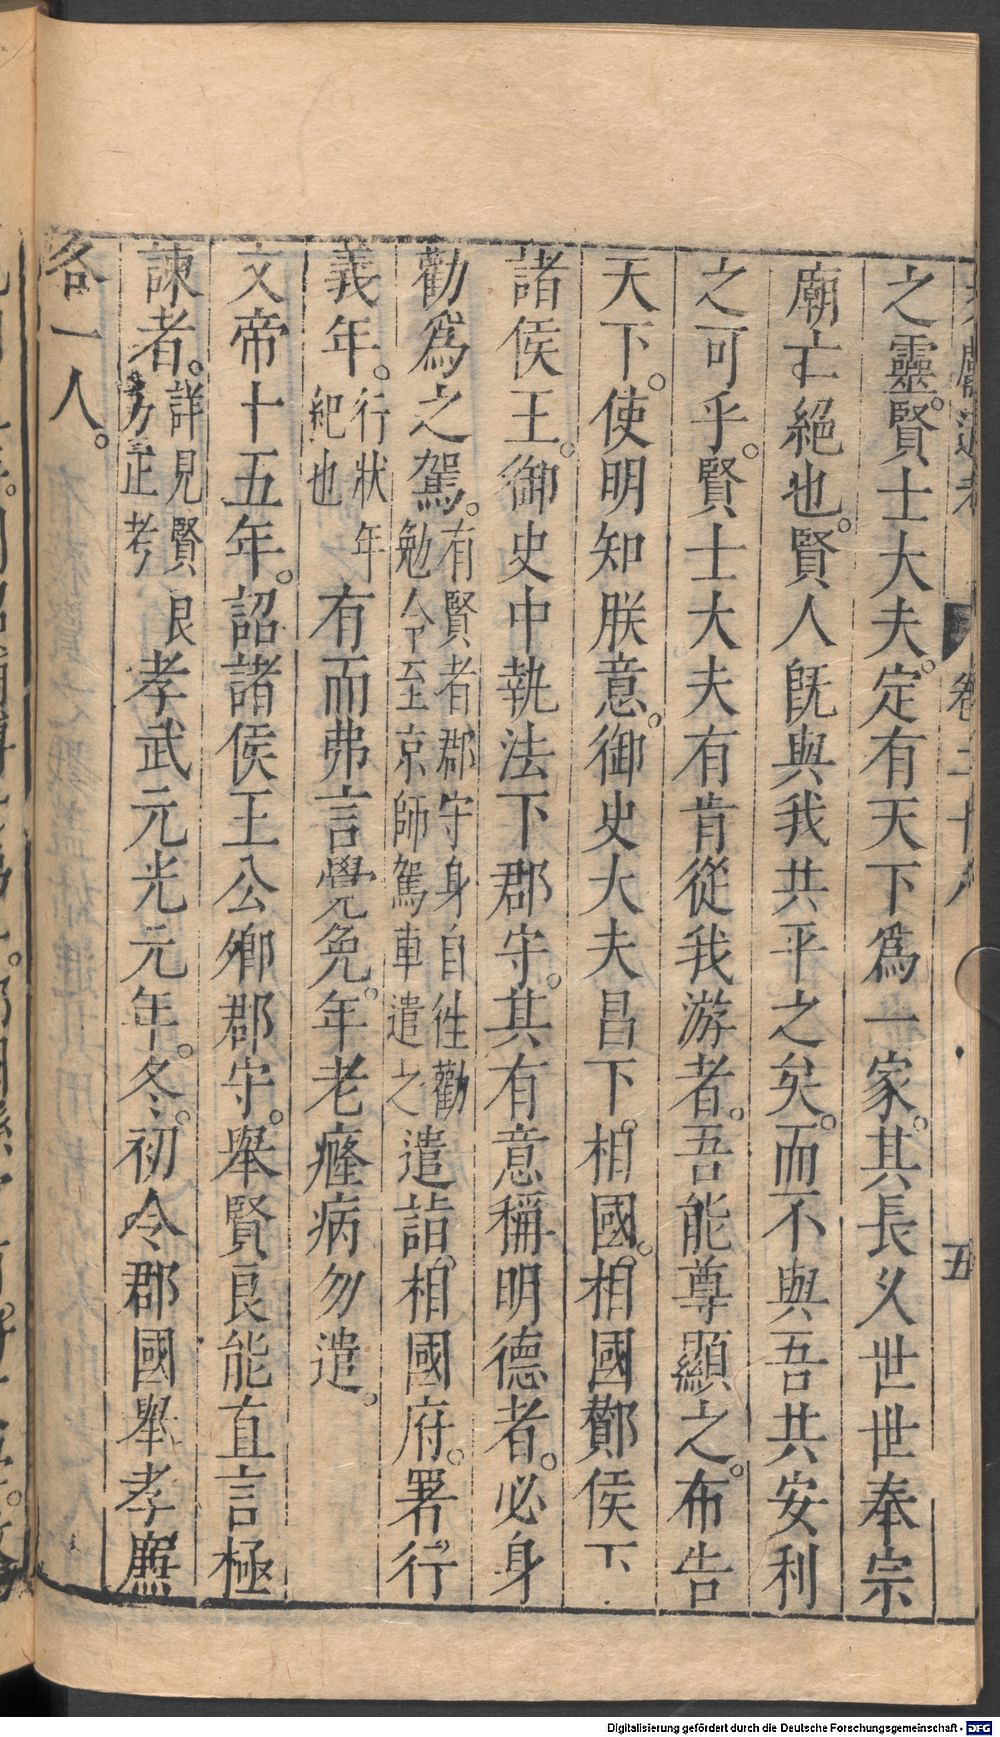 之靈。賢士大夫。定有天下爲一家。其長久世世奉宗
廟亡絕也。賢人旣與我共平之矣。而不與吾共安利
之可乎。賢士大夫有肯從我游者。吾能尊顯之。布告
天下。使明知朕意。御史大夫昌下。相國。相國酇侯下
諸侯王。御史中執法下郡守。其有意稱明德者。必身
勸爲之駕。有賢者郡守身自往勸勉令至京師駕車遣之遣詣。相國府。署行
義年。行狀年紀也有而弗言覺免。年老癃病勿遣。
文帝十五年。詔諸侯王公卿郡守。舉賢良能直言極
諫者。詳見賢良方正考孝武元光元年。冬。初令郡國舉孝廉
各一人。
卷二十八
五
Digitalisierung gefördert durch die Deutsche Forschungsgemeinschaft - DFG